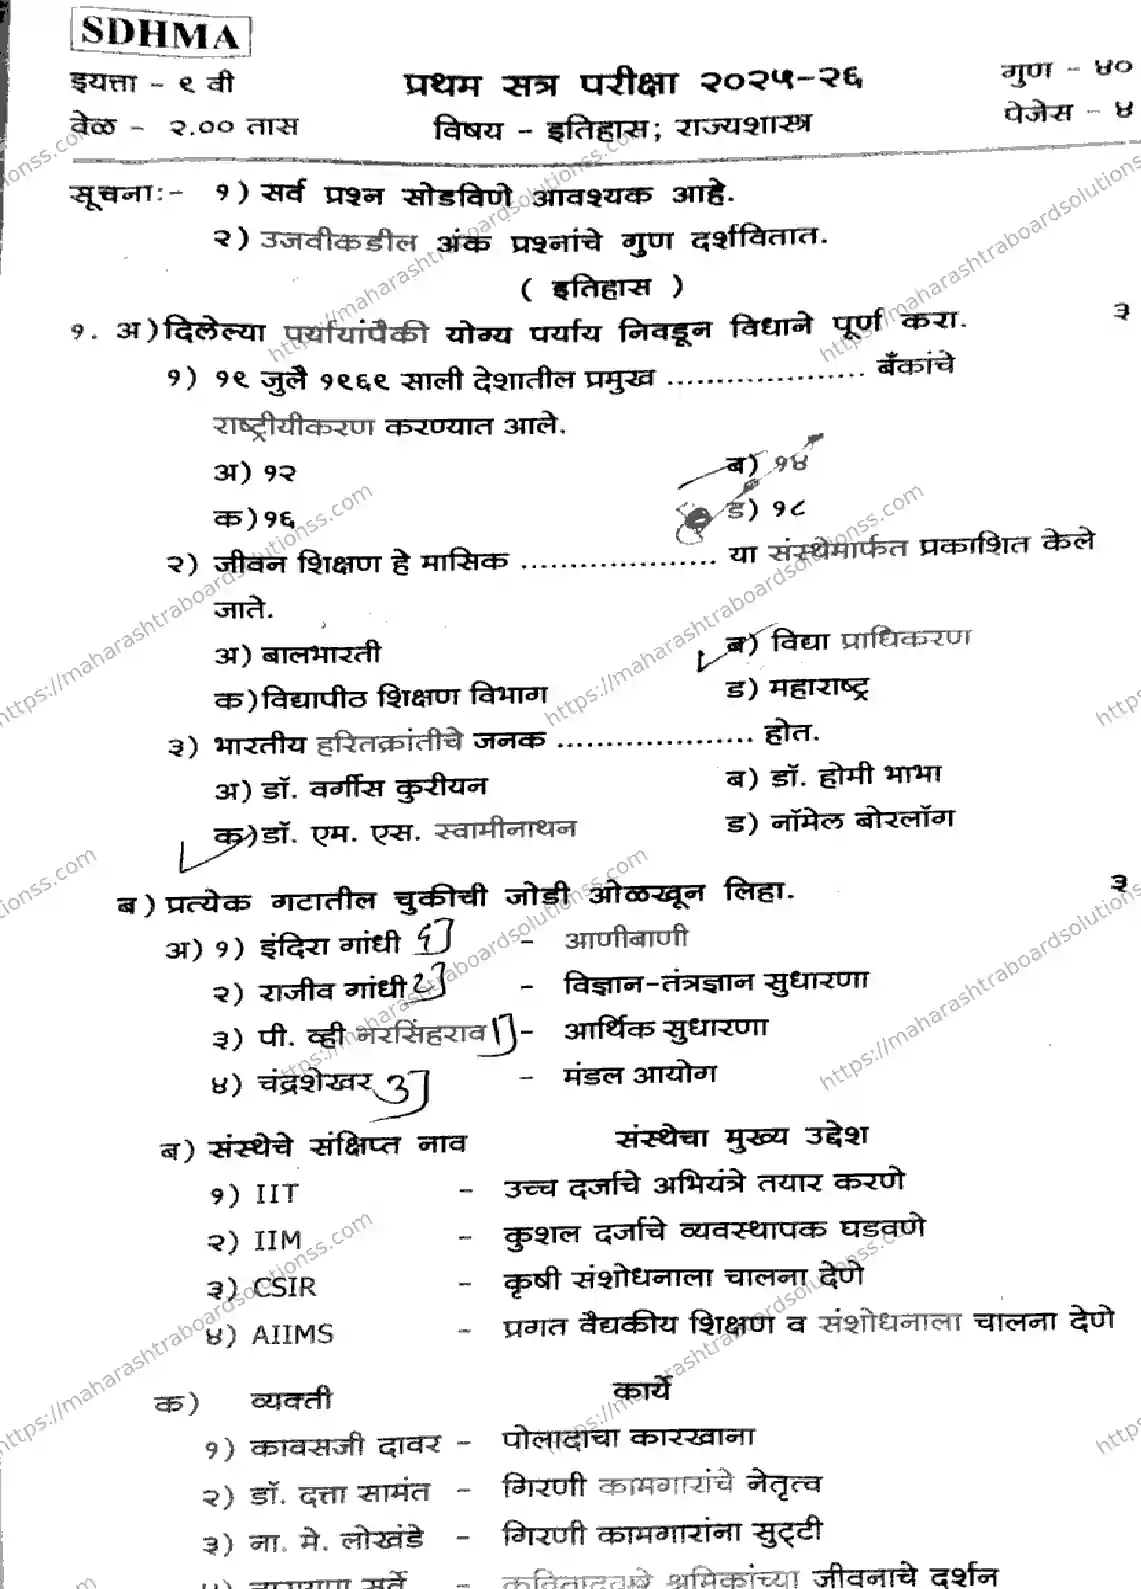 SDHMA
इयत्ता - ९ वी
प्रथम सत्र परीक्षा २०२५-२६
गुण - ४०
वेळ - २.०० तास
विषय - इतिहास; राज्यशास्त्र
पेजेस - ४
सूचनाः- १) सर्व प्रश्न सोडविणे आवश्यक आहे.
२) उजवीकडील अंक प्रश्नांचे गुण दर्शवितात.
( इतिहास )
१. अ) दिलेल्या पर्यायांपैकी योग्य पर्याय निवडून विधाने पूर्ण करा. ३
१) १९ जुलै १९६९ साली देशातील प्रमुख .................... बँकांचे
राष्ट्रीयीकरण करण्यात आले.
अ) १२ ब) १४
क) १६ ड) १८
२) जीवन शिक्षण हे मासिक .................... या संस्थेमार्फत प्रकाशित केले
जाते.
अ) बालभारती ब) विद्या प्राधिकरण
क) विद्यापीठ शिक्षण विभाग ड) महाराष्ट्र
३) भारतीय हरितक्रांतीचे जनक .................... होत.
अ) डॉ. वर्गीस कुरीयन ब) डॉ. होमी भाभा
क) डॉ. एम. एस. स्वामीनाथन ड) नॉमेल बोरलॉग
ब) प्रत्येक गटातील चुकीची जोडी ओळखून लिहा. ३
अ) १) इंदिरा गांधी - आणीबाणी
२) राजीव गांधी - विज्ञान-तंत्रज्ञान सुधारणा
३) पी. व्ही नरसिंहराव - आर्थिक सुधारणा
४) चंद्रशेखर - मंडल आयोग
ब) संस्थेचे संक्षिप्त नाव संस्थेचा मुख्य उद्देश
१) IIT - उच्च दर्जाचे अभियंत्रे तयार करणे
२) IIM - कुशल दर्जाचे व्यवस्थापक घडवणे
३) CSIR - कृषी संशोधनाला चालना देणे
४) AIIMS - प्रगत वैद्यकीय शिक्षण व संशोधनाला चालना देणे
क) व्यक्ती कार्ये
१) कावसजी दावर - पोलादाचा कारखाना
२) डॉ. दत्ता सामंत - गिरणी कामगारांचे नेतृत्व
३) ना. मे. लोखंडे - गिरणी कामगारांना सुट्टी
४) नारायण सुर्वे - श्रमिकांच्या जीवनाचे दर्शन
https://maharashtraboardsolutionss.com